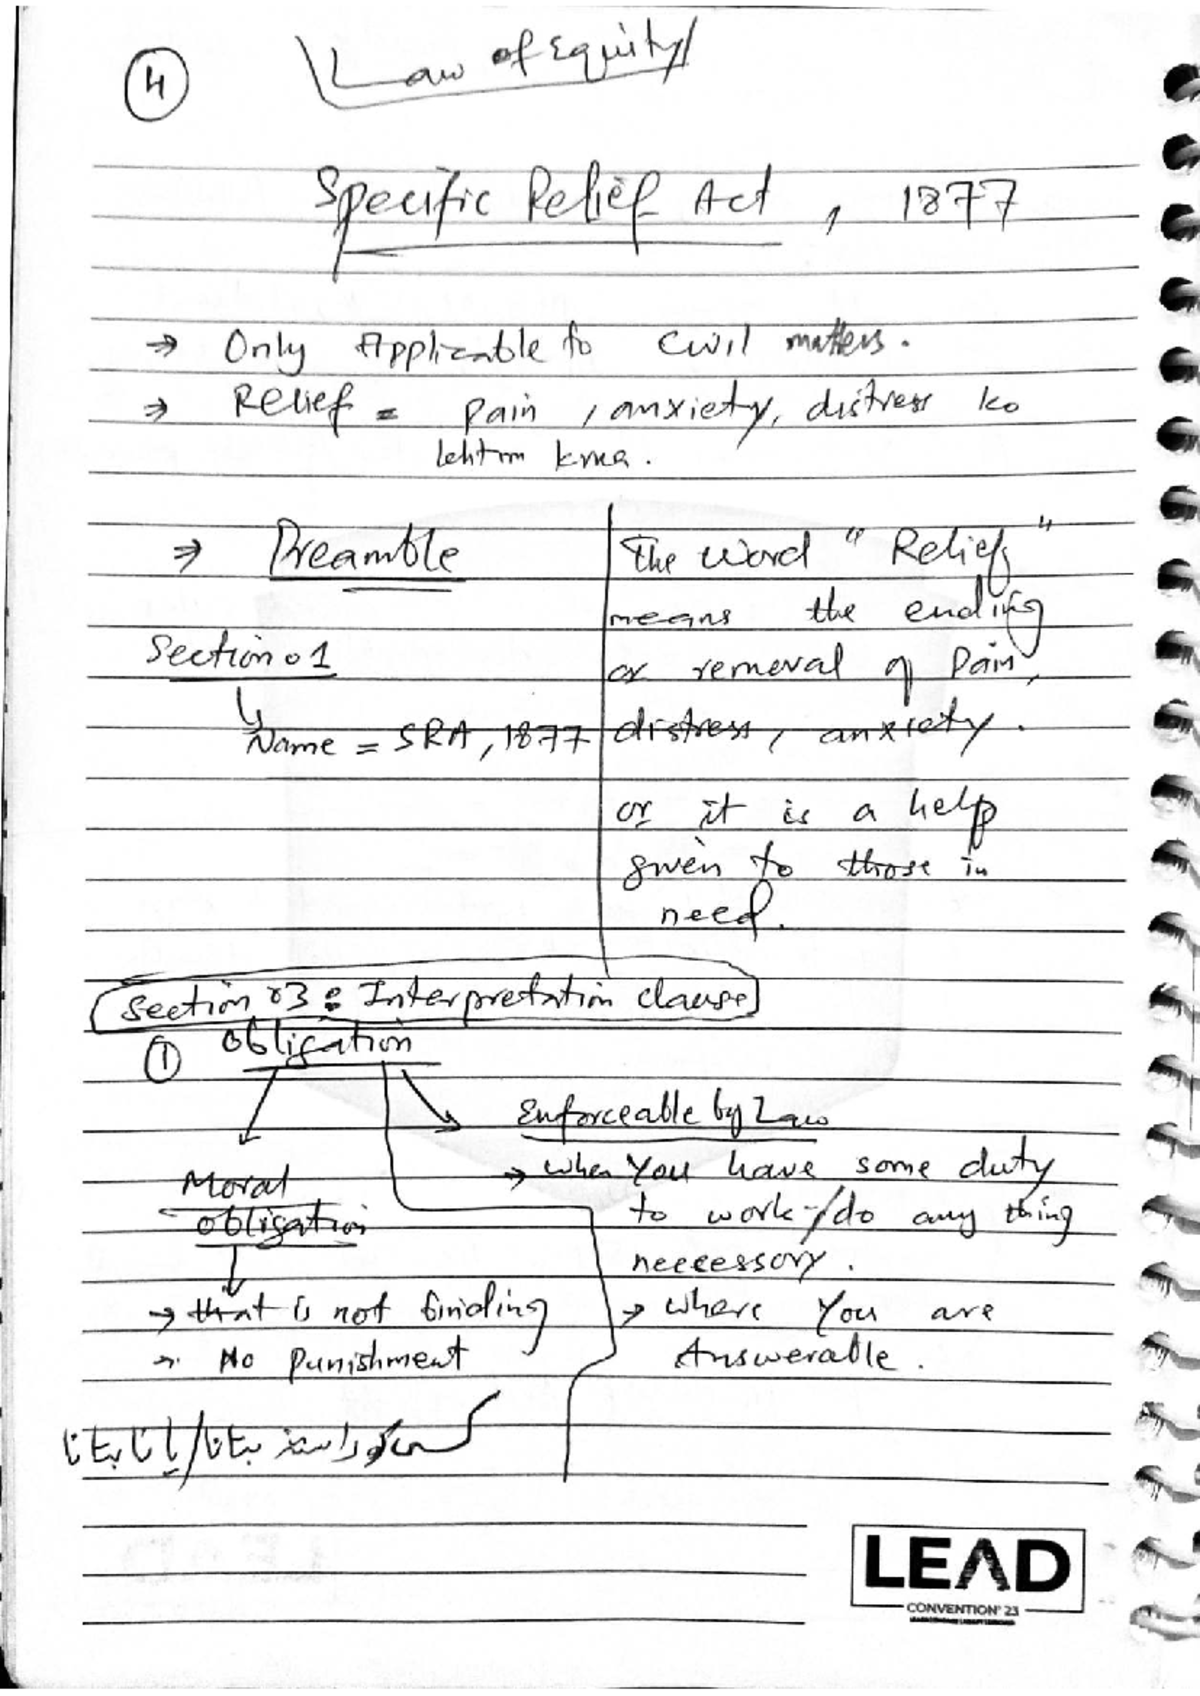 4
Law of Equity
Specific Relief Act , 1877
⇒ Only Applicable to Civil matters.
⇒ Relief = pain , anxiety, distress ko
khtm krna.
⇒ Preamble
Section 01
Name = SRA, 1877
The word "Relief"
means the ending
or removal of Pain,
distress, anxiety.
or it is a help
given to those in
need.
Section 03: Interpretation clause
① Obligation
Moral
obligation
→ that is not binding
→ No punishment
کسی کو راستہ بتانا/پانا بتانا
Enforceable by Law
→ when You have some duty
to work/do any thing
neccessory.
→ where You are
Answerable.
LEAD
CONVENTION' 23